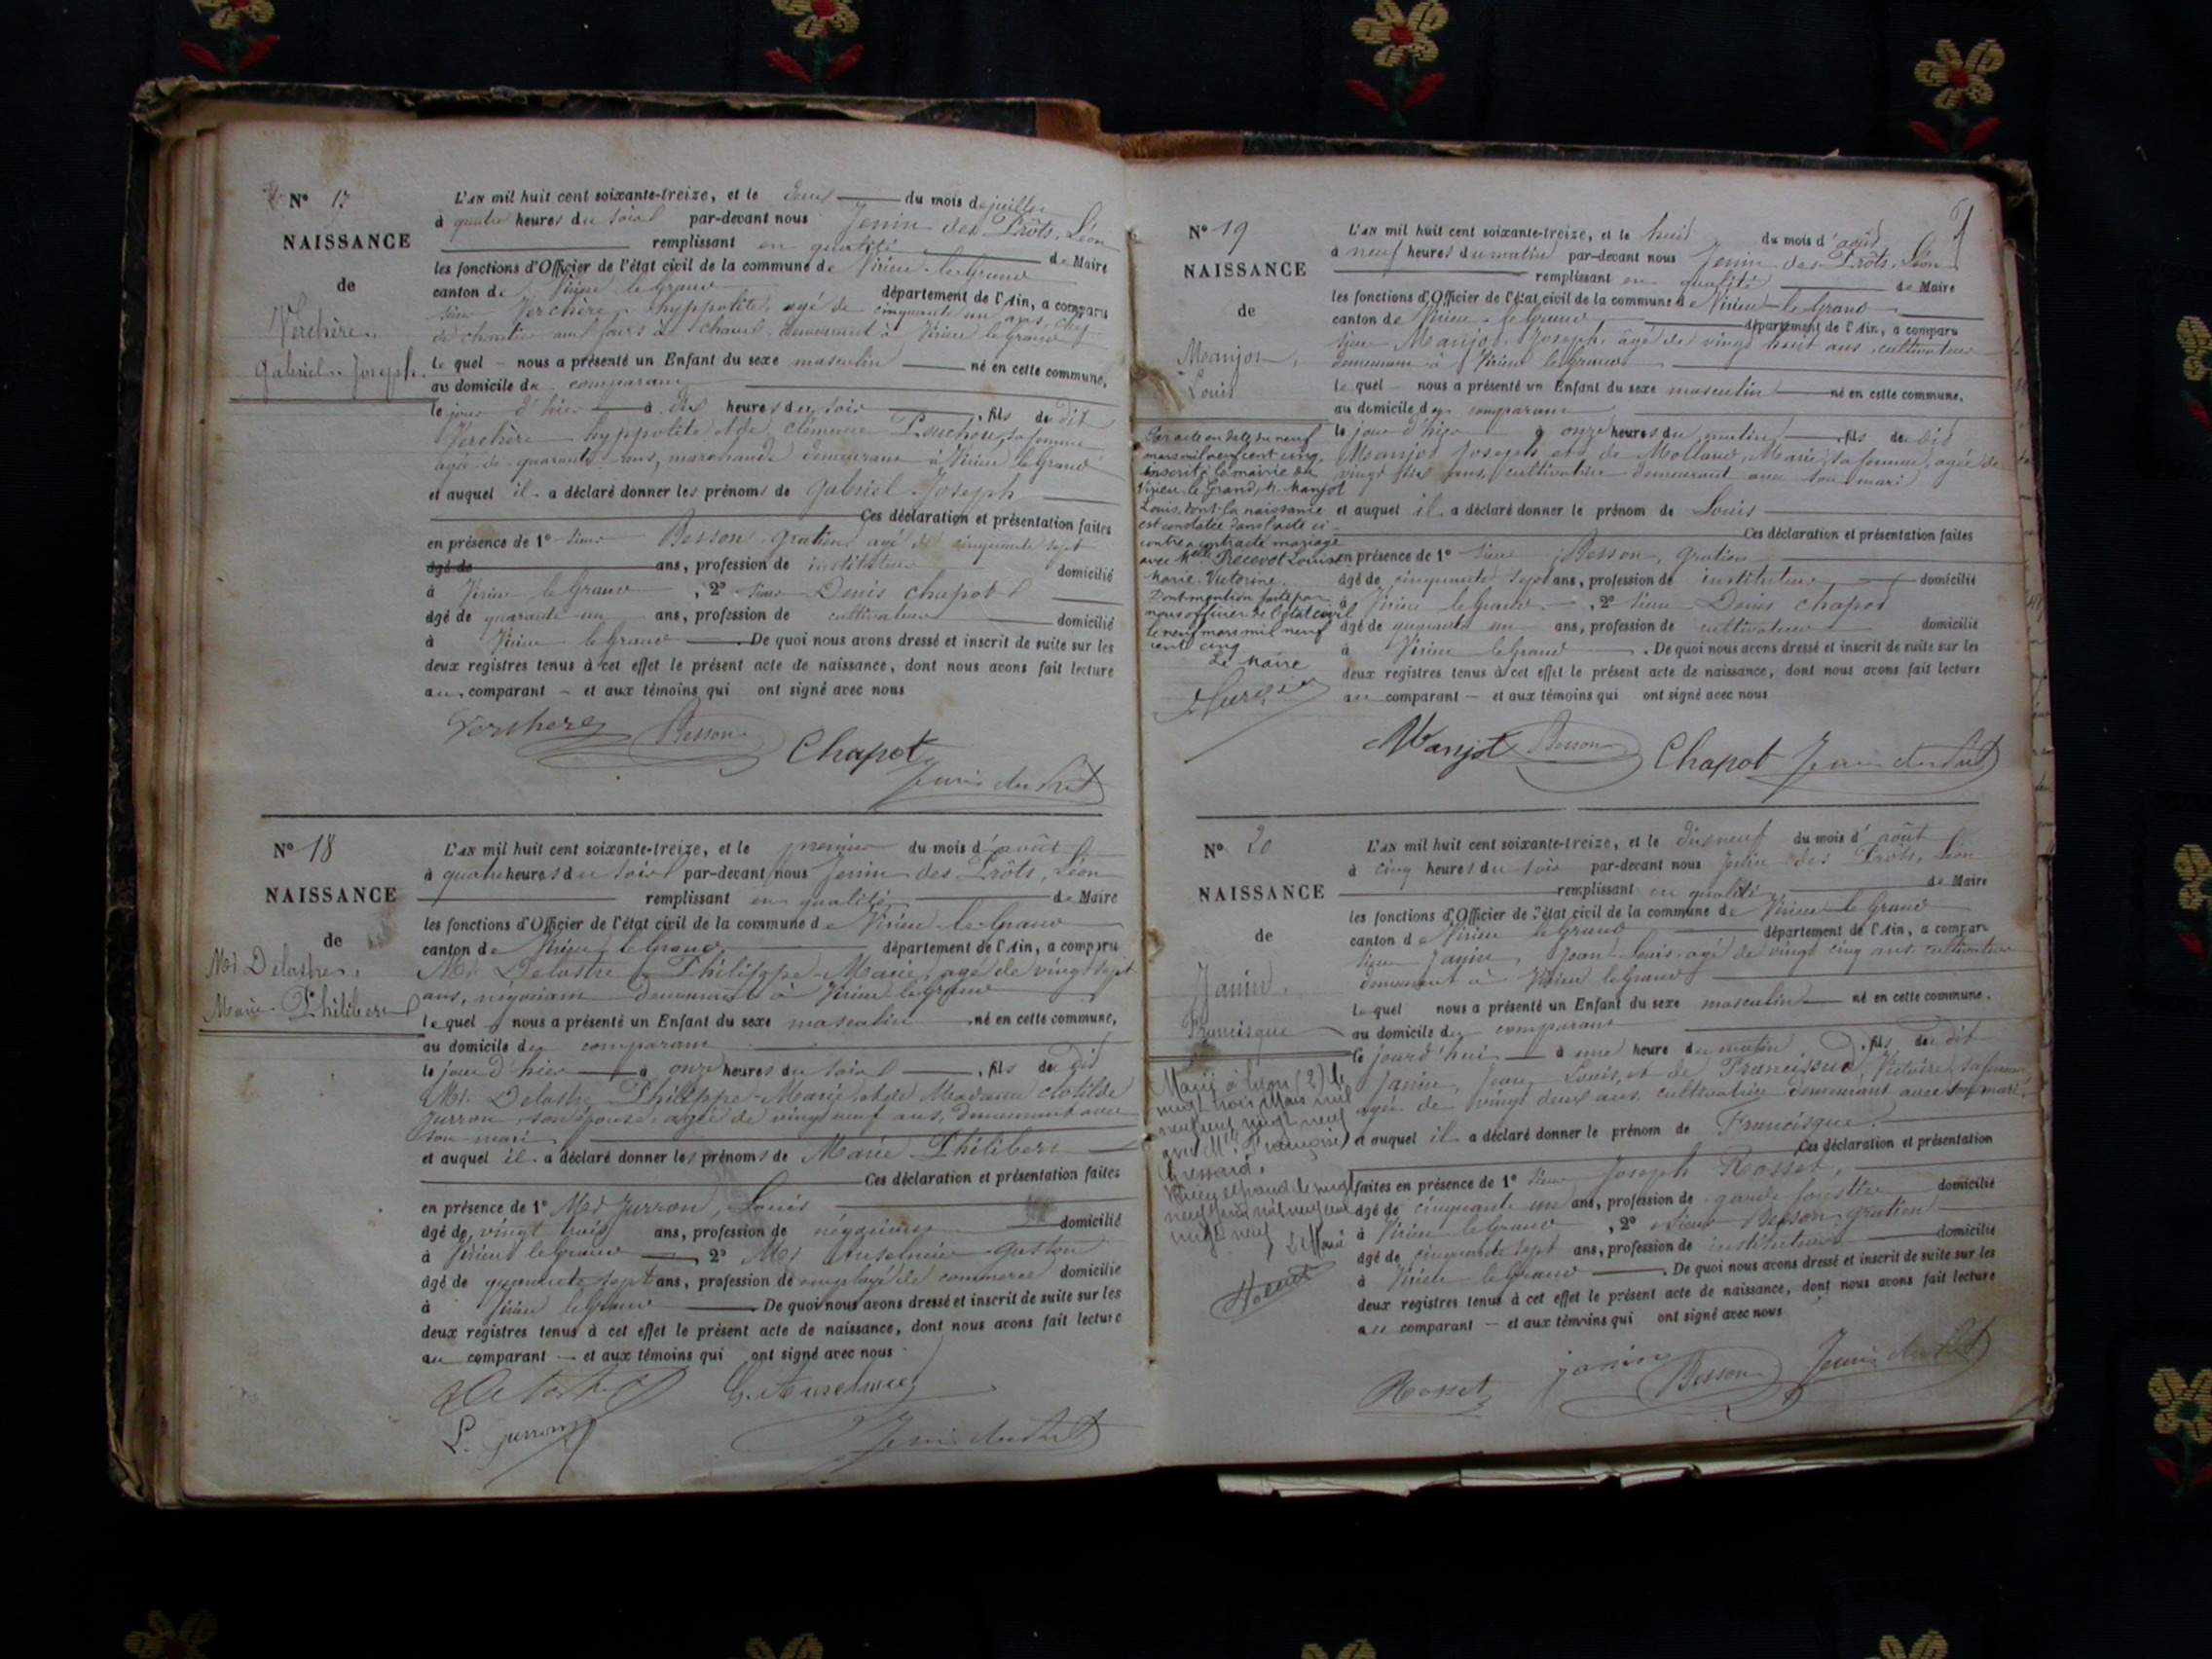 N° 17
NAISSANCE
de
Verchère,
Gabriel Joseph.
L'AN mil huit cent soixante-treize, et le deux du mois de juillet
à quatre heures du soir par-devant nous Jenin des Prôts, Léon
remplissant en qualité de Maire
les fonctions d'Officier de l'état civil de la commune de Virieu-le-Grand
canton de Virieu le Grand département de l'Ain, a comparu
sieur Verchère hyppolite, agé de cinquante un ans, chef
de chantier aux fours à chaux, demeurant à Virieu le Grand
le quel nous a présenté un Enfant du sexe masculin né en cette commune,
au domicile du comparant
le jour d'hier à dix heures du soir, fils du dit
Verchère hyppolite et de clémence Pouchon, sa femme
agée de quarante ans, marchande demeurant à Virieu le Grand
et auquel il a déclaré donner les prénoms de Gabriel Joseph
Ces déclaration et présentation faites
en présence de 1° sieur Besson gratien agé de cinquante sept
âgé de ans, profession de instituteur domicilié
à Virieu le Grand, 2° sieur Denis chapot
âgé de quarante un ans, profession de cultivateur domicilié
à Virieu le Grand. De quoi nous avons dressé et inscrit de suite sur les
deux registres tenus à cet effet le présent acte de naissance, dont nous avons fait lecture
au comparant – et aux témoins qui ont signé avec nous
Verchere Besson Chapot
Jenin des Prôts
N° 18
NAISSANCE
de
Mr Delastre,
Marie Philibert
L'AN mil huit cent soixante-treize, et le premier du mois d'août
à quatre heures du soir par-devant nous Jenin des Prôts, Léon
remplissant en qualité de Maire
les fonctions d'Officier de l'état civil de la commune de Virieu-le-Grand
canton de Virieu le Grand département de l'Ain, a comparu
Mr Delastre Philippe-Marie, agé de vingt sept
ans, négociant demeurant à Virieu le Grand
le quel nous a présenté un Enfant du sexe masculin né en cette commune,
au domicile du comparant
le jour d'hier à onze heures du soir, fils du dit
Mr Delastre Philippe-Marie et de Madame clotilde
Jurron, son épouse, agée de vingt neuf ans, demeurant avec
son mari
et auquel il a déclaré donner les prénoms de Marie Philibert
Ces déclaration et présentation faites
en présence de 1° Mr Jurron, Louis
âgé de vingt trois ans, profession de négociant domicilié
à Virieu le Grand 2° Mr Anselmier Gaston
âgé de quarante sept ans, profession de employé de commerce domicilié
à Virieu le Grand. De quoi nous avons dressé et inscrit de suite sur les
deux registres tenus à cet effet le présent acte de naissance, dont nous avons fait lecture
au comparant – et aux témoins qui ont signé avec nous
L. Jurron Jenin des Prôts
N° 19
NAISSANCE
de
Manjot,
Louis
Par acte en date du neuf
mars mil neuf cent cinq,
inscrit à la mairie de
Virieu le Grand, M. Manjot
Louis, dont la naissance
est constatée dans l'acte ci-
contre a contracté mariage
avec Melle Recevot Louise
Marie Victorine.
Dont mention faite par
nous officier de l'état civil
le neuf mars mil neuf
cent cinq
Le Maire
L'AN mil huit cent soixante-treize, et le huit du mois d'août
à neuf heures du matin par-devant nous Jenin des Prôts, Léon
remplissant en qualité de Maire
les fonctions d'Officier de l'état civil de la commune de Virieu-le-Grand
canton de Virieu le Grand département de l'Ain, a comparu
sieur Manjot Joseph, âgé de vingt huit ans, cultivateur
demeurant à Virieu le Grand
le quel nous a présenté un Enfant du sexe masculin né en cette commune,
au domicile du comparant
le jour d'hier à onze heures du matin, fils du dit
Manjot Joseph et de Mollard, Marie, sa femme, agée de
vingt six ans, cultivatrice demeurant avec son mari
et auquel il a déclaré donner le prénom de Louis
Ces déclaration et présentation faites
en présence de 1° sieur Besson, gratien
âgé de cinquante sept ans, profession de instituteur domicilié
à Virieu le Grand, 2° sieur Denis chapot
âgé de quarante un ans, profession de cultivateur domicilié
à Virieu le Grand. De quoi nous avons dressé et inscrit de suite sur les
deux registres tenus à cet effet le présent acte de naissance, dont nous avons fait lecture
au comparant – et aux témoins qui ont signé avec nous
Manjot Besson Chapot Jenin des Prôts
N° 20
NAISSANCE
de
Janin,
Francisque
Marié à Lyon (2) le
vingt trois Mars mil
neuf cent vingt neuf
avec Mlle Françoise
Gressard.
neuf mil neuf cent
vingt neuf
Le Maire
L'AN mil huit cent soixante-treize, et le dix neuf du mois d'août
à cinq heures du soir par-devant nous Jenin des Prôts, Léon
remplissant en qualité de Maire
les fonctions d'Officier de l'état civil de la commune de Virieu le Grand
canton de Virieu le Grand département de l'Ain, a comparu
sieur Janin, Jean Louis, agé de vingt cinq ans, cultivateur
demeurant à Virieu le Grand
le quel nous a présenté un Enfant du sexe masculin né en cette commune,
au domicile du comparant
le jourd'hui à une heure du matin, fils du dit
Janin, Jean Louis, et de Victoire, sa femme
agée de vingt deux ans, cultivatrice demeurant avec son mari,
et auquel il a déclaré donner le prénom de Francisque.
Ces déclaration et présentation
faites en présence de 1° sieur Joseph Rosset,
âgé de cinquante un ans, profession de garde forestier domicilié
à Virieu le Grand, 2° sieur Besson gratien
âgé de cinquante sept ans, profession de instituteur domicilié
à Virieu le Grand. De quoi nous avons dressé et inscrit de suite sur les
deux registres tenus à cet effet le présent acte de naissance, dont nous avons fait lecture
au comparant – et aux témoins qui ont signé avec nous
Rosset janin Besson Jenin des Prôts